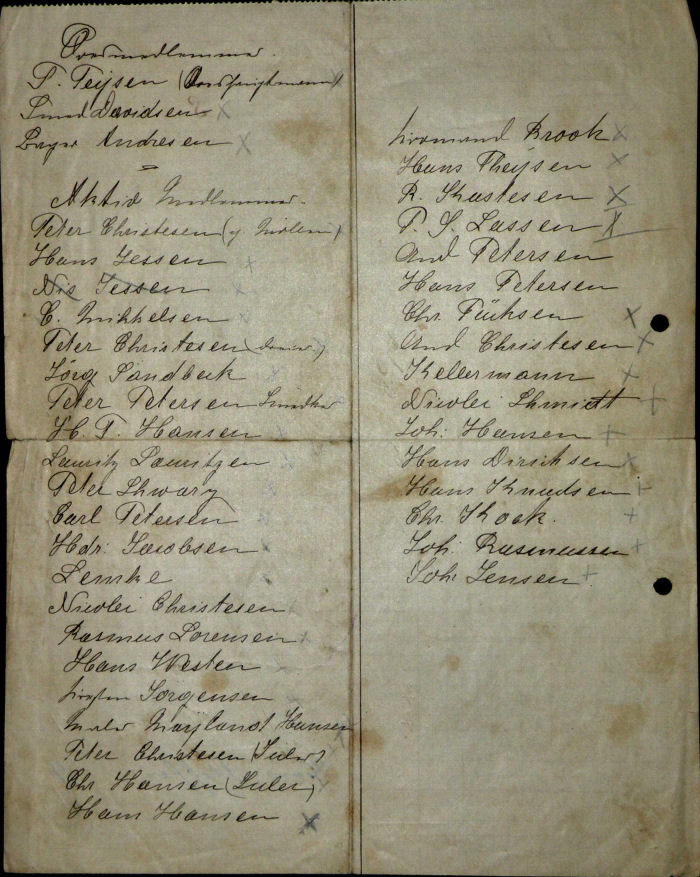 P. Teijsen
Smed Davidsen
Andresen
Aktive Medlemmer.
Peter Christesen
Hans Jessen
Nis Jessen
C. Mikkelsen
Peter Christesen
Jörg Sandbeck
Peter Petersen
H. P. Hansen
Lauritz Lauritzen
Peter Shwarz
Carl Petersen
Hdr. Jacobsen
Lemke
Nicolei Christesen
Rasmus Lorensen
Hans Westen
Jörgensen
Maler Mayland Hansen
Peter Christesen
Chr Hansen
Hans Hansen
Brook
Hans Theijsen
P. S. Lassen
And Petersen
Hans Petersen
Chr. Füchsen
And Christesen
Kellermann
Nicolei Shmidt
Joh. Hansen
Hans Dirichsen
Hans Knudsen
Chr. Kook.
Joh. Rasmussen
Joh. Jensen